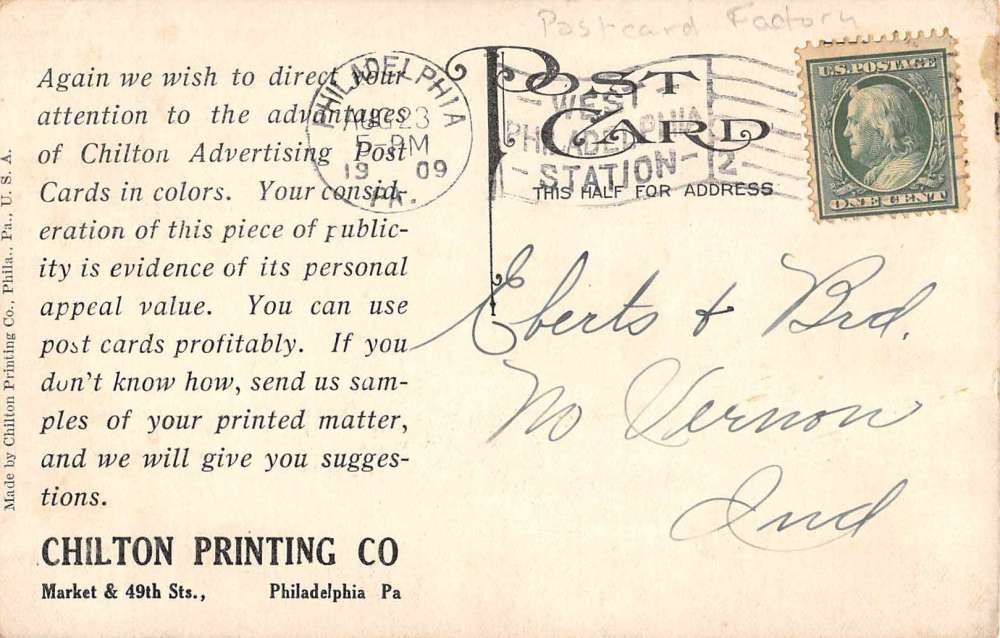 Postcard Factory
Again we wish to direct your
attention to the advantages
of Chilton Advertising Post
Cards in colors. Your consid-
eration of this piece of public-
ity is evidence of its personal
appeal value. You can use
post cards profitably. If you
don't know how, send us sam-
ples of your printed matter,
and we will give you sugges-
tions.
CHILTON PRINTING CO
Market & 49th Sts., Philadelphia Pa
Made by Chilton Printing Co., Phila., Pa., U. S. A.
PHILADELPHIA
AUG 23
5-PM
19 09
PA.
WEST
PHILADELPHIA
STATION 2
POST
CARD
THIS HALF FOR ADDRESS
U.S. POSTAGE
ONE CENT
Eberts & Brd.
Mo Vernon
Ind